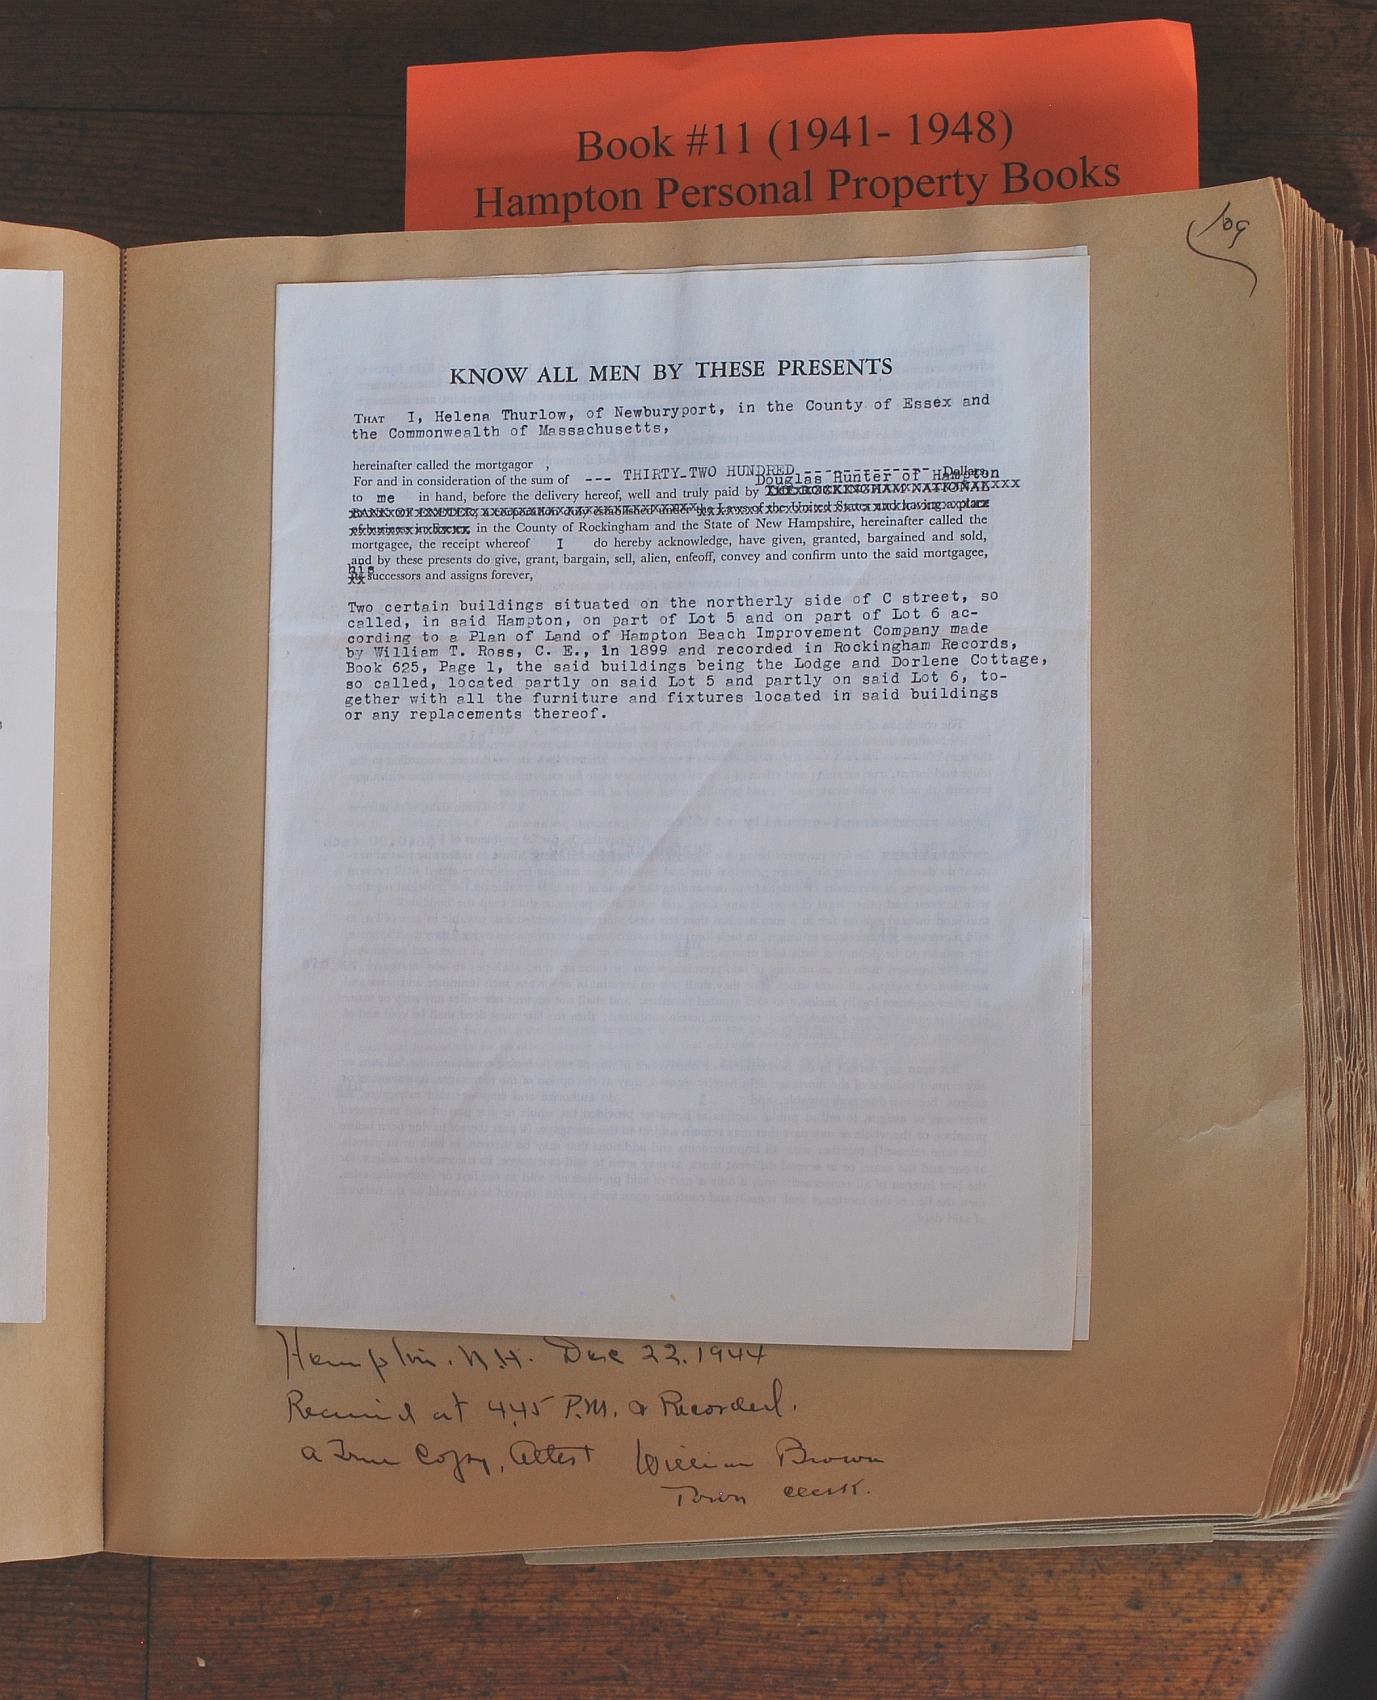 Book #11 (1941- 1948)
Hampton Personal Property Books
109
KNOW ALL MEN BY THESE PRESENTS
THAT I, Helena Thurlow, of Newburyport, in the County of Essex and
the Commonwealth of Massachusetts,
hereinafter called the mortgagor ,
For and in consideration of the sum of --- THIRTY-TWO HUNDRED ------------- Dollars
Douglas Hunter of Hampton
to me in hand, before the delivery hereof, well and truly paid by THE ROCKINGHAM NATIONAL
BANK OF EXETER, a corporation duly established under the Laws of the United States and having a place
of business in Exeter, in the County of Rockingham and the State of New Hampshire, hereinafter called the
mortgagee, the receipt whereof I do hereby acknowledge, have given, granted, bargained and sold,
and by these presents do give, grant, bargain, sell, alien, enfeoff, convey and confirm unto the said mortgagee,
his
successors and assigns forever,
Two certain buildings situated on the northerly side of C street, so
called, in said Hampton, on part of Lot 5 and on part of Lot 6 ac-
cording to a Plan of Land of Hampton Beach Improvement Company made
by William T. Ross, C. E., in 1899 and recorded in Rockingham Records,
Book 625, Page 1, the said buildings being the Lodge and Dorlene Cottage,
so called, located partly on said Lot 5 and partly on said Lot 6, to-
gether with all the furniture and fixtures located in said buildings
or any replacements thereof.
Hampton, N.H. Dec 22, 1944
Received at 4.45 P.M. & Recorded.
a True Copy, Attest William Brown
Town Clerk.